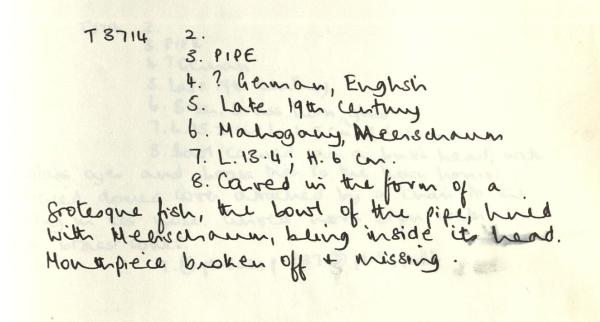 T3714 2.
3. PIPE
4. ? German, English
5. Late 19th century
6. Mahogany, Meerschaum
7. L.13.4; H.6 cm.
8. Carved in the form of a
grotesque fish, the bowl of the pipe, lined
with Meerschaum, being inside its head.
Mouthpiece broken off + missing.